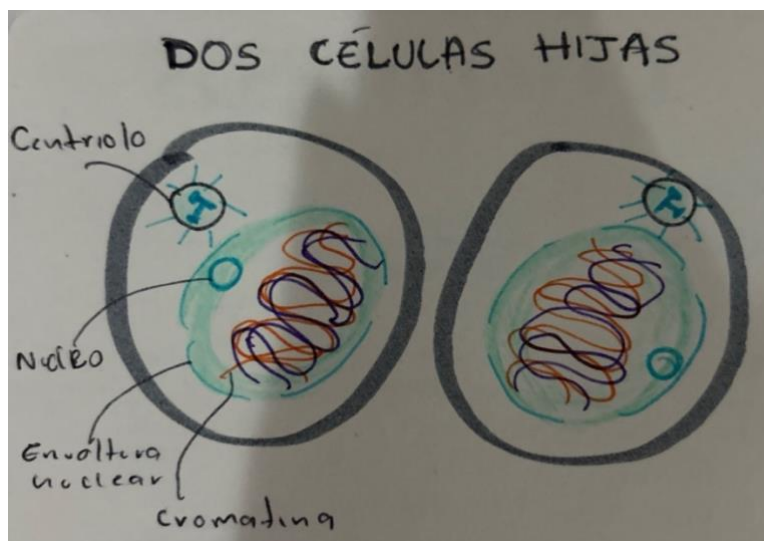 DOS CÉLULAS HIJAS
Centriolo
Nucleo
Envoltura
nuclear
cromatina